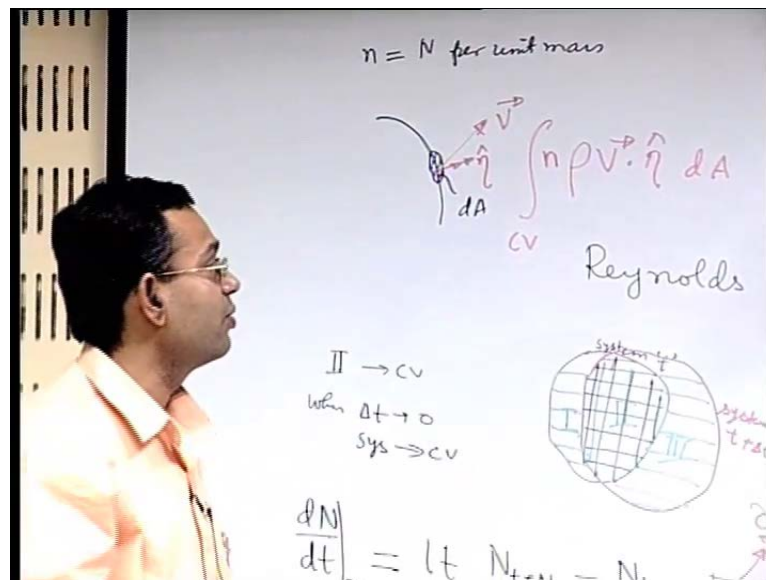 n = N per unit mass
V
η̂
dA
∫ n ρ V⃗ · η̂ dA
CV
Reynolds
II → CV
When Δt → 0
Sys → CV
system t
I II III
system
dN/dt = lt